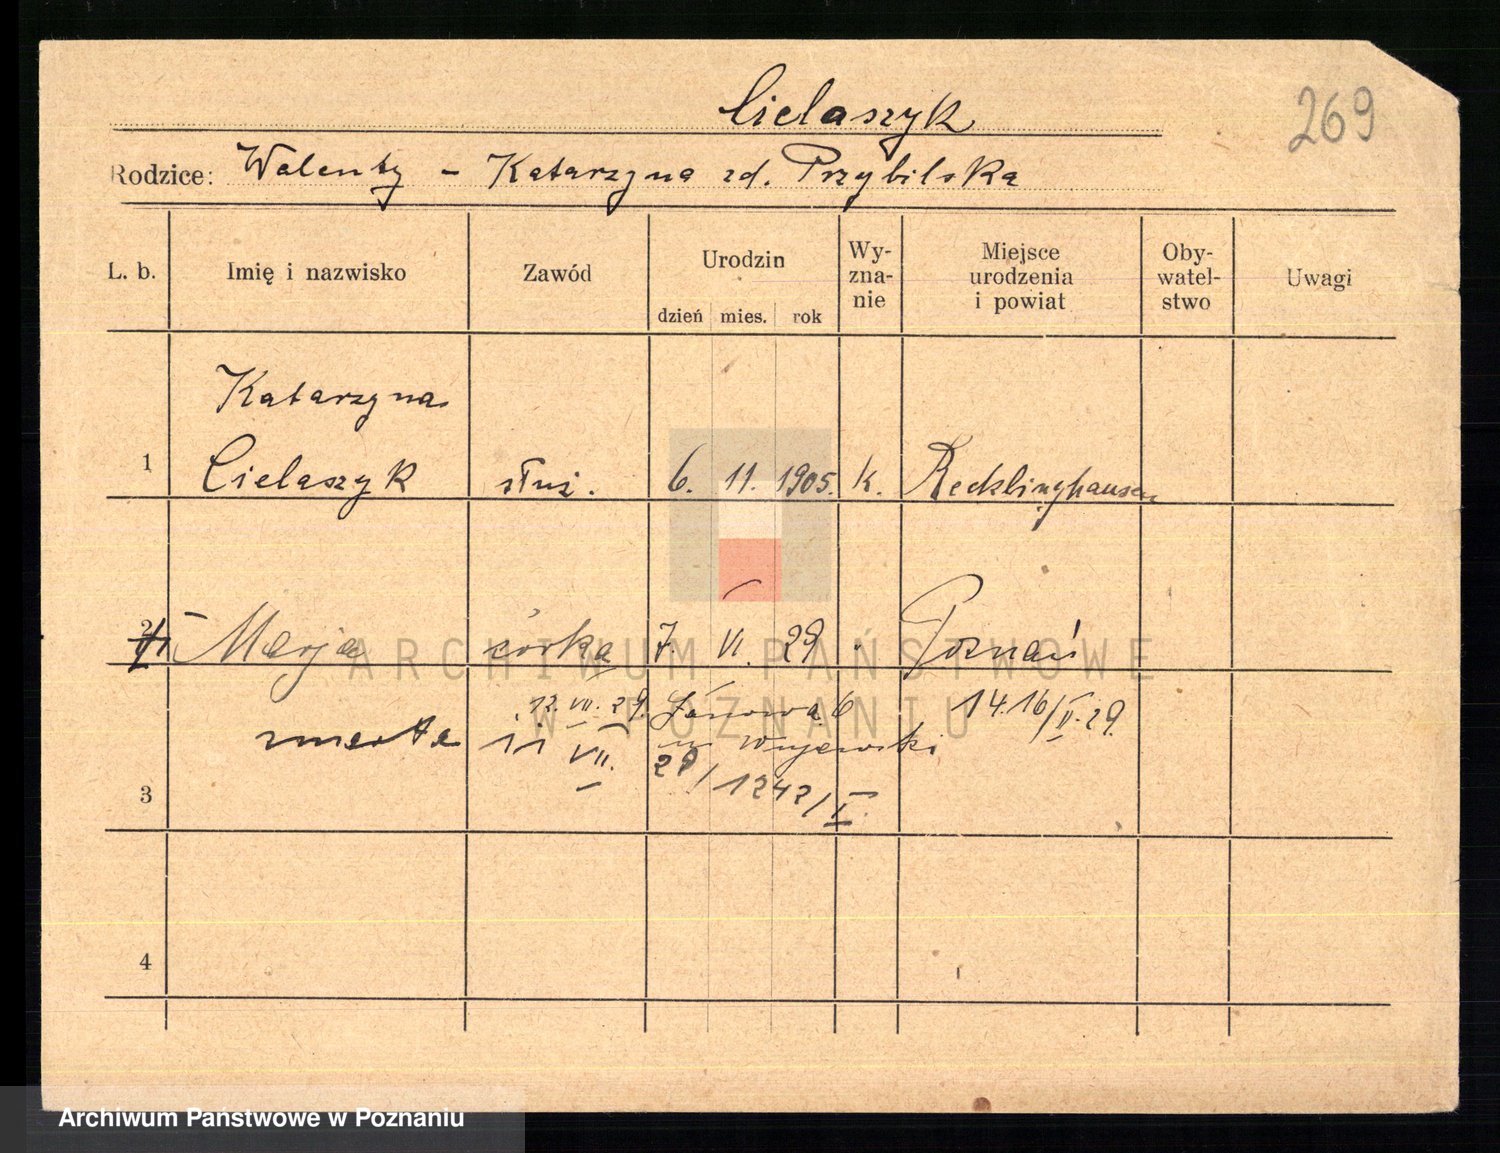 Cielaszyk
269
Rodzice: Walenty - Katarzyna zd. Przybilska
L. b. Imię i nazwisko Zawód Urodzin dzień mies. rok Wy-zna-nie Miejsce urodzenia i powiat Oby-watel-stwo Uwagi
Katarzyna
1 Cielaszyk służ. 6. 11. 1905. k. Recklinghausen
2 Marja córka 7 VI. 29 Poznań
ARCHIWUM PAŃSTWOWE
W POZNANIU
12. VII. 29. 6 14.16/V. 29.
zmarła 11 VII. 29/1242/I.
m Wujewski
3
4
Archiwum Państwowe w Poznaniu